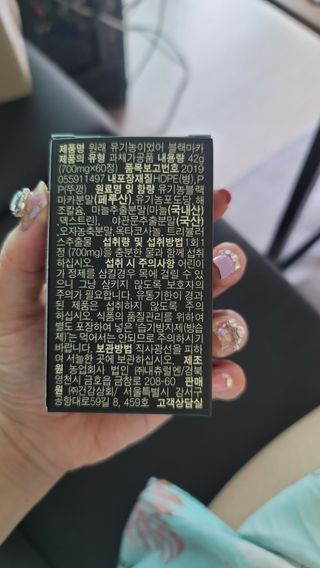 제품명 원래 유기농이었어 블랙마카
제품의 유형 과채가공품 내용량 42g
(700mg×60정) 품목보고번호 2019
055911497 내포장재질HDPE(병), P
P(뚜껑) 원료명 및 함량 유기농블랙
마카분말(페루산), 유기농포도당, 해
조칼슘, 마늘추출분말(마늘(국내산)
덱스트린), 아연추출분말(국산)
,오자농축분말, 옥타코사놀, 트리뷸러
스추출물 섭취량 및 섭취방법 1회 1
정 (700mg)을 충분한 물과 함께 섭취
하십시오. 섭취 시 주의사항 어린이
가 정제를 삼킬경우 목에 걸릴 수 있
으니 그냥 삼키지 않도록 보호자의
주의가 필요합니다. 유통기한이 경과
된 제품은 섭취하지 않도록 주의
하십시오. 식품의 품질관리를 위하여
별도 포장하여 넣은 '습기방지제(방습
제)'는 먹어서는 안되므로 주의하시기
바랍니다. 보관방법 직사광선을 피하
여 서늘한 곳에 보관하십시오. 제조
원 농업회사 법인 ㈜내츄럴엔/경북
영천시 금호읍 금창로 208-60 판매
원 ㈜건강삼회/ 서울특별시 강서구
공항대로59길 8, 459호 고객상담실